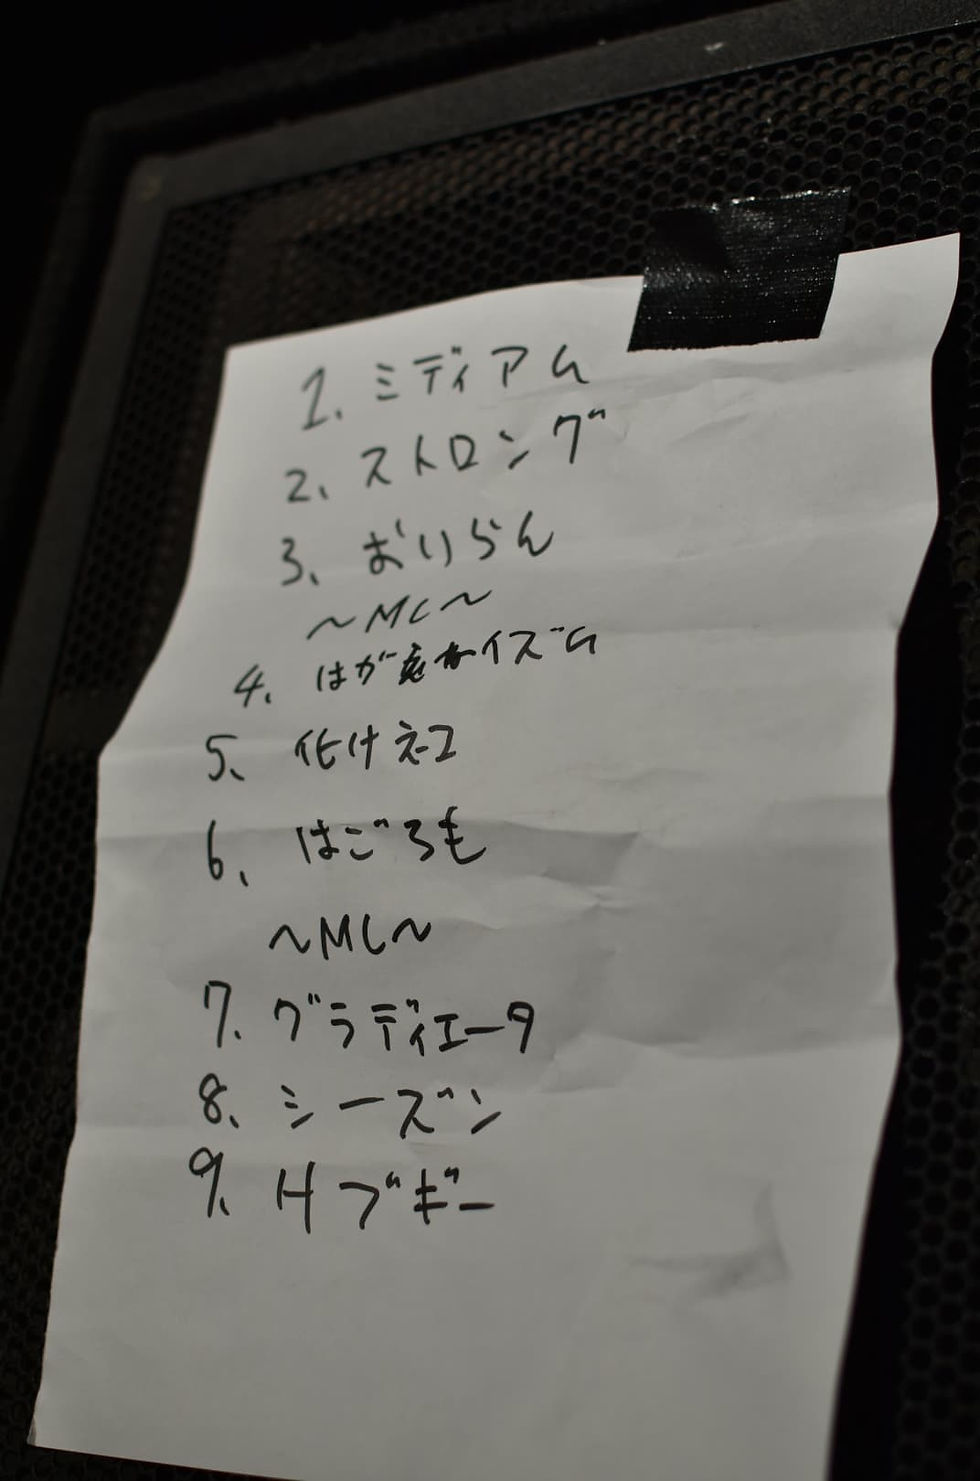 1. ミディアム
2. ストロング
3. おいらん
～MC～
4. はがネイズム
5. 化けネコ
6. はごろも
～MC～
7. グラディエータ
8. シーズン
9. Hブギー